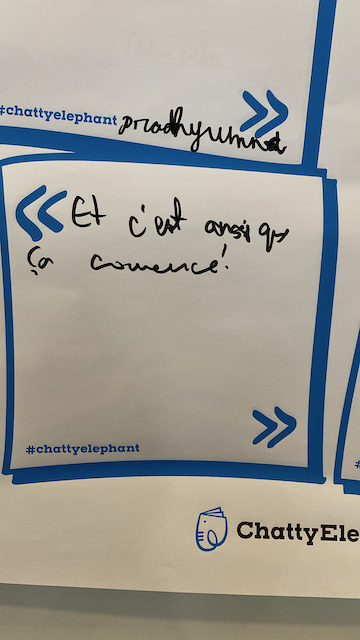 #chattyelephant
prodhyumna
Et c'est ansi que
ça comence!
#chattyelephant
ChattyEle